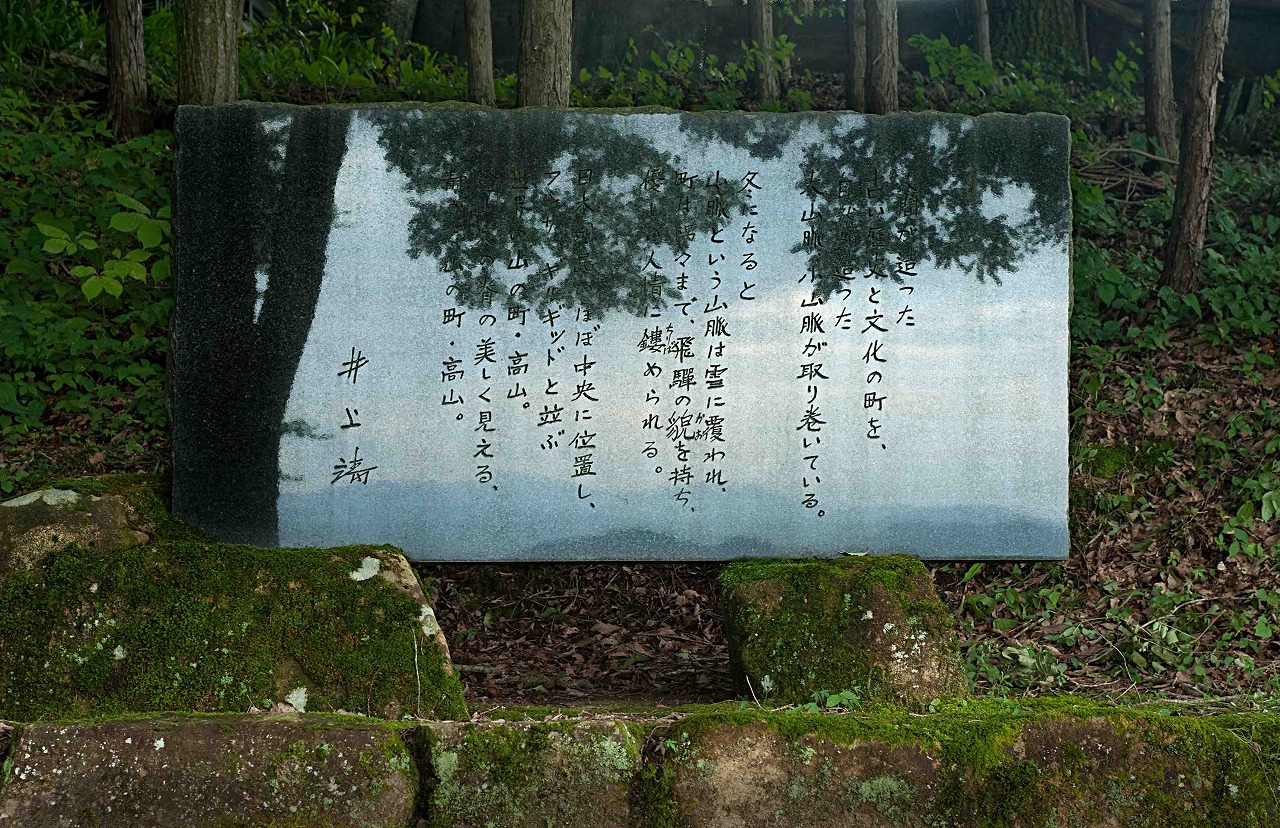 が造った
古い歴史と文化の町を、
が造った
大山脈、小山脈が取り巻いている。
冬になると
山脈という山脈は雪に覆われ、
町は隅々まで、飛驒の貌を持ち、
かお
優しい人情に鏤められる。
ちりば
日本のほぼ中央に位置し、
フンザ、ギルギットと並ぶ
世界の山の町・高山。
の美しく見える、
の町・高山。
井上靖